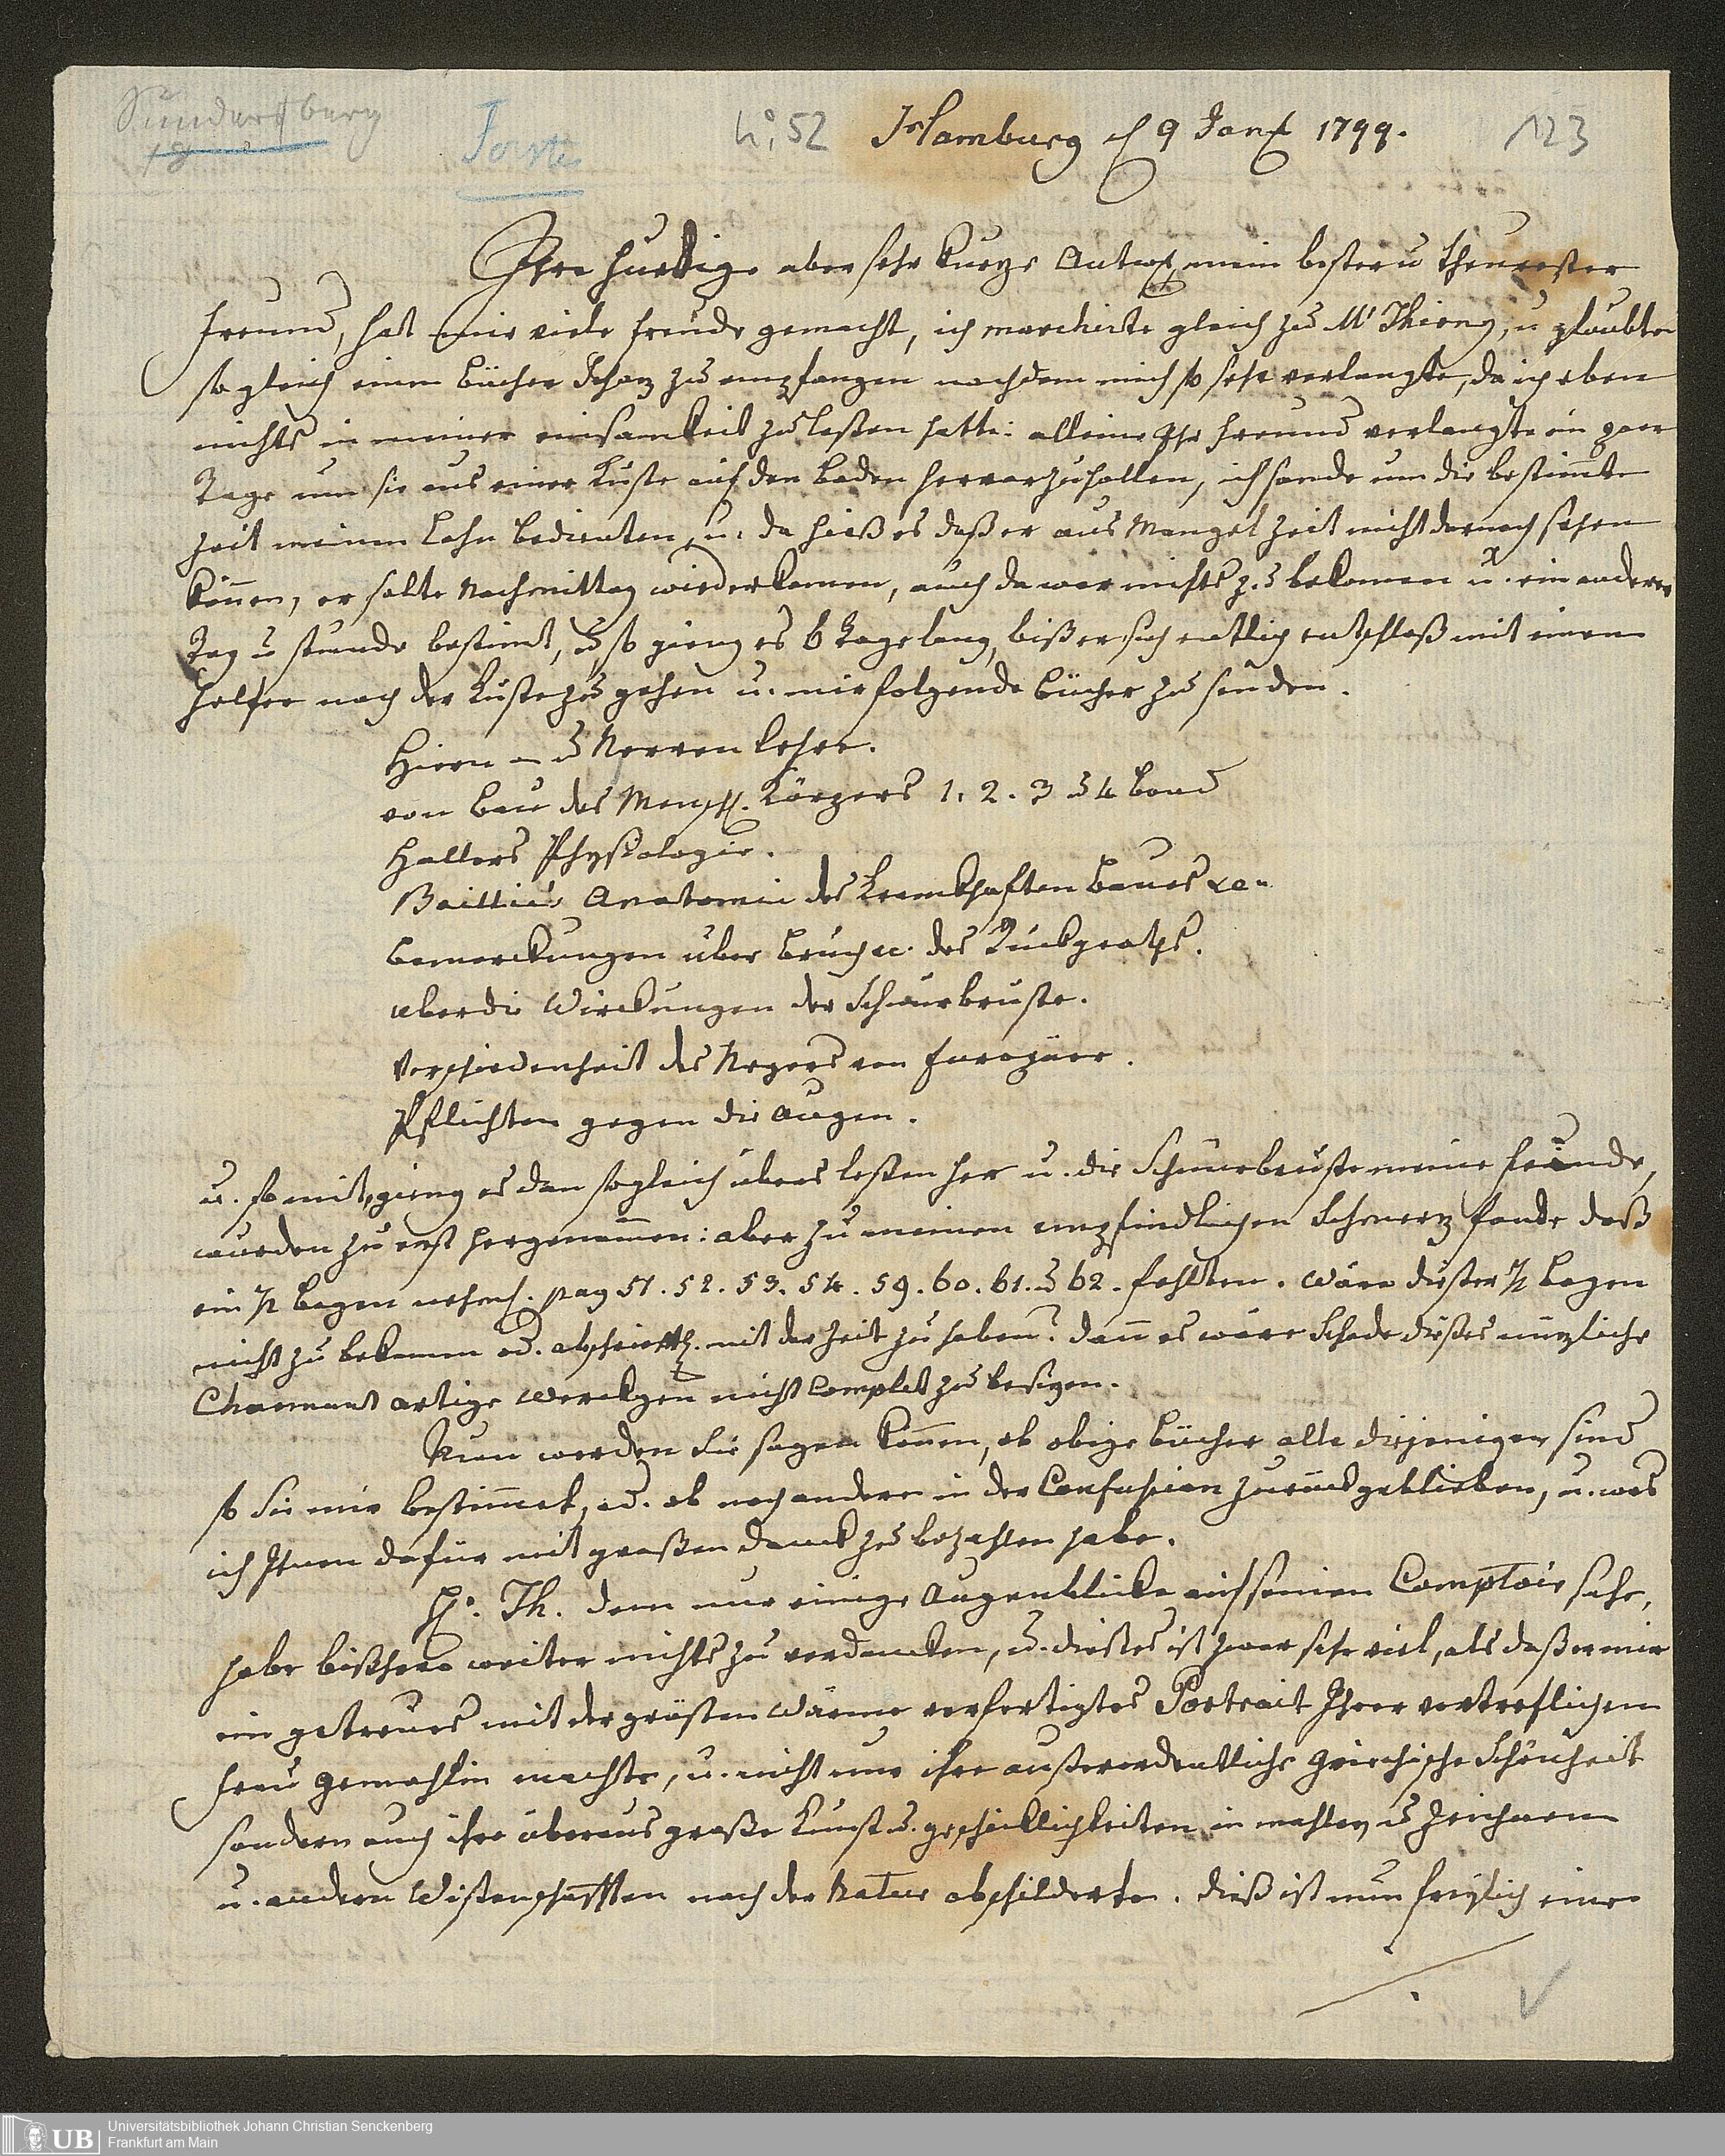 Forster
No 52 Hamburg d 9 Jan 1799. 123
Ihre hurtige aber sehr kurtze Antw. mein bester u theurester
Freund, hat mir viele Freude gemacht, ich marchirte gleich zu Mr Thierry, u glaubte
so gleich einen Bücher Schaz zu empfangen nachdem mich so sehr verlangte, da ich eben
nichts in meiner einsamkeit zu lesen hatte: alleine Ihr Freund verlangte ein paar
Tage um sie aus einer Kuste auf den Boden hervorzuhollen, ich sande um die bestimte
Zeit meinen Lohn Bedienten, u. da hieß es daß er aus Mangel Zeit nicht darnach sehen
können, er solte Nachmittag wiederkomen, auch da war nichts zu bekomen u. ein anderer
Tag u stunde bestimt, u so gieng es 6 Tage lang, biß er sich entlich entschloß mit einem
Helfer nach der Kuste zu gehen u. mir folgende Bücher zu senden.
Hiern - u Nerven Lehre.
von Bau des Mensch. Körpers 1. 2. 3 u 4 Band
Hallers Physiologie.
Baillie's Anatomie des Krankhaften Baues
Bemerckungen über Bruch des Rückgraths.
über die Wirckungen der Schnürbrüste.
Verschiedenheit des Negers von Europäer.
Pflichten gegen die Augen.
u. so mit gieng es dan sogleich übers lesen her u. die Schnürbrüste meine Feinde,
wurden zu erst hergenommen: aber zu meinen empfindlichen Schmertz fande daß
ein 1/2 Bogen nehml. pag 51. 52. 53. 54. 59. 60. 61. u 62. fehlten. Wäre dieser 1/2 Bogen
nicht zu bekomen od. abschriftl. mit der Zeit zu haben? dann es wäre Schade dieses nüzliche
Charmant artige Werckgen nicht Complet zu besizen.
Nun werden Sie sagen können, ob obige Bücher alle diejenigen sind
so Sie mir bestimmet, od. ob noch andere in der Confusion zurück geblieben, u. was
ich Ihnen dafür mit großen Danck zu bezahlen habe.
Hr. Th. dem nur einige Augenblicke auf seinen Comptoir sahe,
habe bißhero weiter nichts zu verdancken, u. dieses ist zwar sehr viel, als daß er mir
ein getreues mit der grösten Wärme verfertigtes Portrait Ihrer vortreflichen
Frau Gemahlin machte, u. nicht nur ihre außerordentliche Griechische Schönheit
sondern auch ihre überaus große Kunst u. geschicklichkeiten in mahlen u Zeichnen
u. andern Wissenschafften nach der Natur abschilderte. Dieß ist nun freylich eine
Universitätsbibliothek Johann Christian Senckenberg
Frankfurt am Main
UB